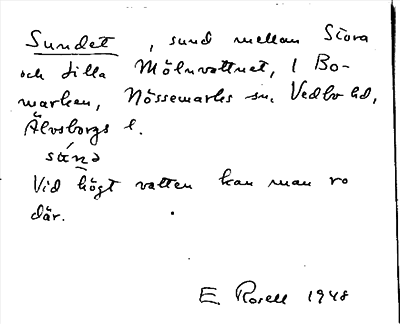 Sundet, sund mellan Stora
och Lilla Mölnvattnet, i Bo-
marken, Nössemarks sn. Vedbo hd,
Älvsborgs l.
súnə
Vid högt vatten kan man ro
där.
E. Rosell 1948